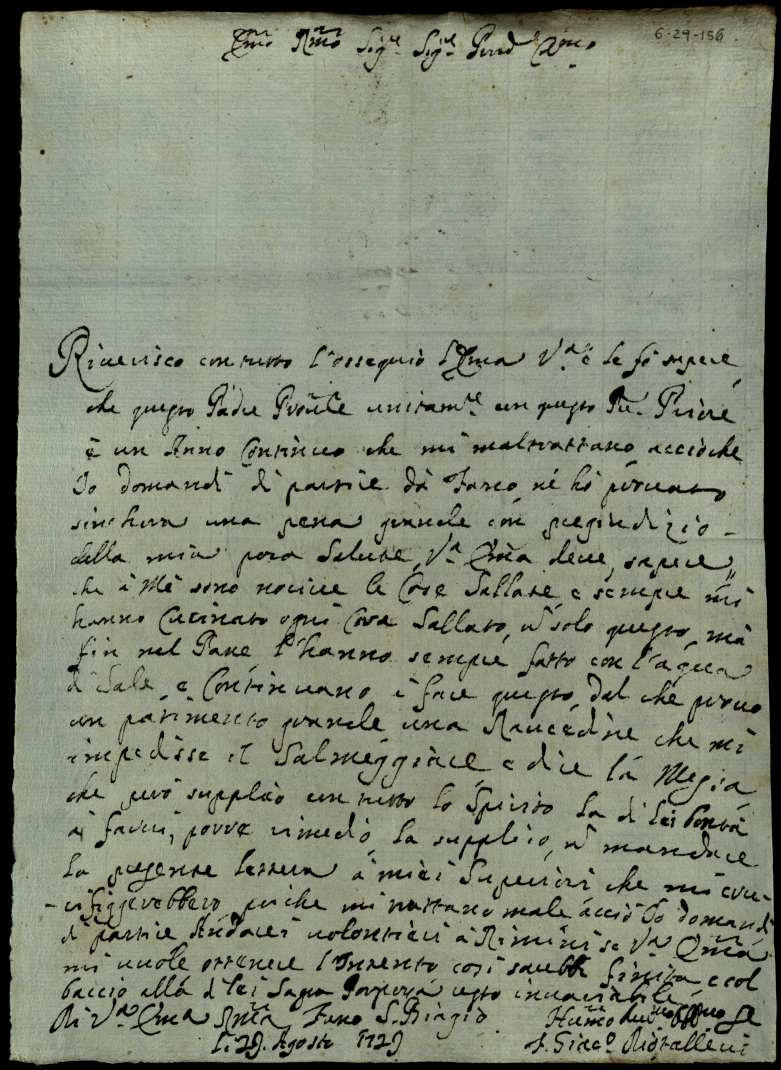 6-29-156
Emo Rmo Sigre Sigre Prõn Cmo
Riverisco con tutto l'ossequio l'Ema Va e le fò sapere
che questo Padre Provle unitamte con questo Pre. Priore
è un Anno Continuo che mi maltrattano acciòche
Io domandi di partire dà Fano né hò provato
sinhora una pena grande con pregiudizio
della mia pora Salute, Va Ema deve sapere
che à Mé sono nocive le Cose Sallate, e sempre mi
hanno Cucinato ogni Cosa Sallato, nò solo questo, mà
fin nel Pane l'hanno sempre fatto con l'aqua
di Sale, e Continuano à fare questo, dal che provo
un patimento grande una Raucedine che mi
impedisse il Salmeggiare e dire la Messa
che però supplico con tutto lo Spirito la di lei bontà
à farvi, porre rimedio, la supplico, nò mandare
la presente lettera à miei Superiori che mi cru-
cifiggerebbero, poiche mi trattano male acciò Io domandi
di partire Andarei volontieri à Rimini se Va Ema
mi vuole ottenere l'Intento così sarebbe finita, e col
baccio alla di lei Sagra Porpora resto invariabile
Di Va Ema Rma Fano S. Biagio
Li 29. Agosto 1729
Humo
F. Giaco